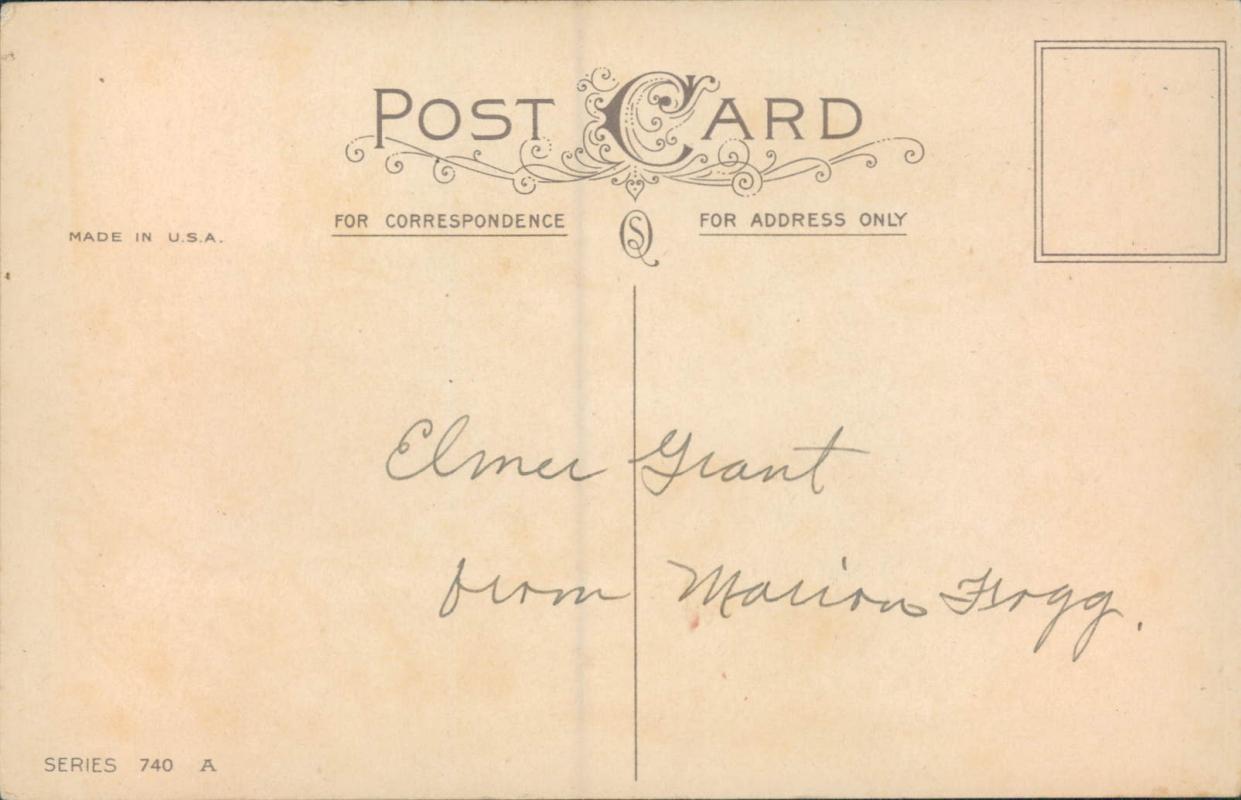 POST CARD
FOR CORRESPONDENCE
FOR ADDRESS ONLY
MADE IN U.S.A.
Elmer Grant
from Marion Fogg.
SERIES 740 A